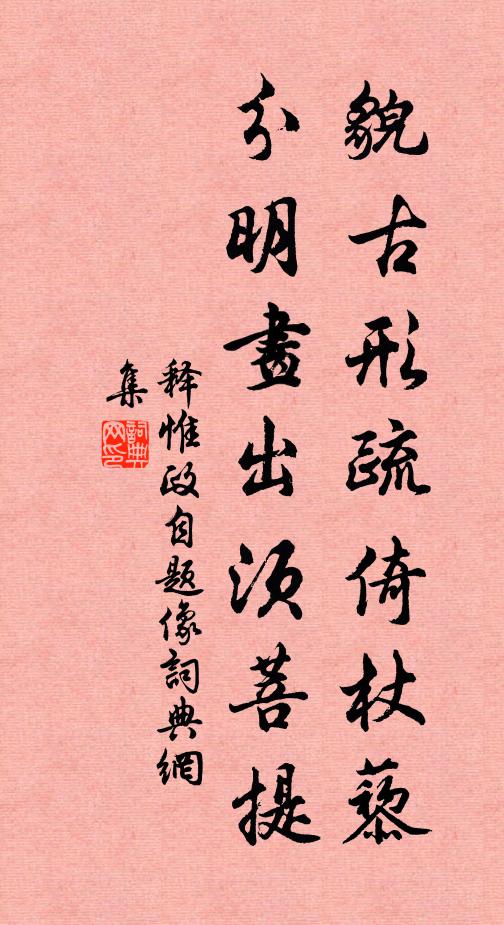 貌古形疏倚杖藜
分明畫出須菩提
释惟政自题像詞典網
集
詞典网印